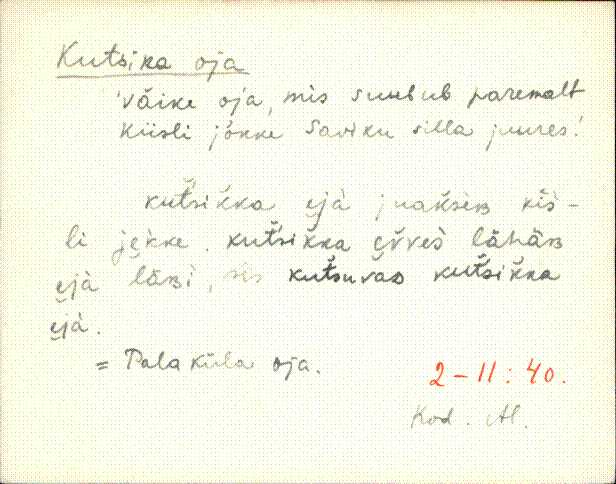 Kutsika oja
'väike oja, mis suubub paremalt
Kiisli jõkke Saviku silla juures!
kut̆sik̆ka ejà juak̆sèʙ kīs̀-
li jek̀ke. kut̆sik̆ka ĕv̆ves̀ lähäʙ
ejà läʙì, sis kut̆suvaᴅ kut̆sik̆ka
ejà.
= Palaküla oja.
2-11:40.
Kod. Al.